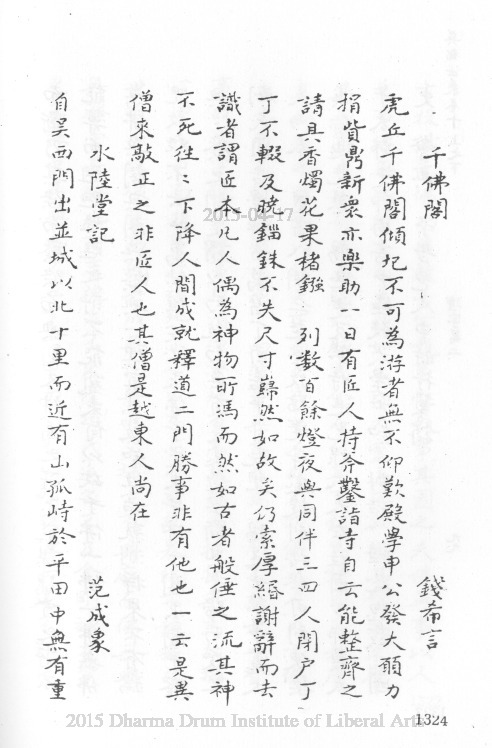 千佛閣 錢希言
虎丘千佛閣傾圮不可為游者無不仰歎殿學申公發大願力
捐貲鼎新衆亦樂助一日有匠人持斧鑿詣寺自云能整齊之
請具香燭花果楮鏹 列數百餘燈夜與同伴三四人閉户丁
丁不輟及曉錙銖不失尺寸巋然如故矣仍索厚緡謝辭而去
識者謂匠本凡人偶為神物所馮而然如古者般倕之流其神
不死往〻下降人間成就釋道二門勝事非有他也一云是異
僧來敲正之非匠人也其僧是越東人尚在
水陸堂記 范成象
自吴西門出並城以北十里而近有山孤峙於平田中無有重
1324
2015-04-17
2015 Dharma Drum Institute of Liberal Arts